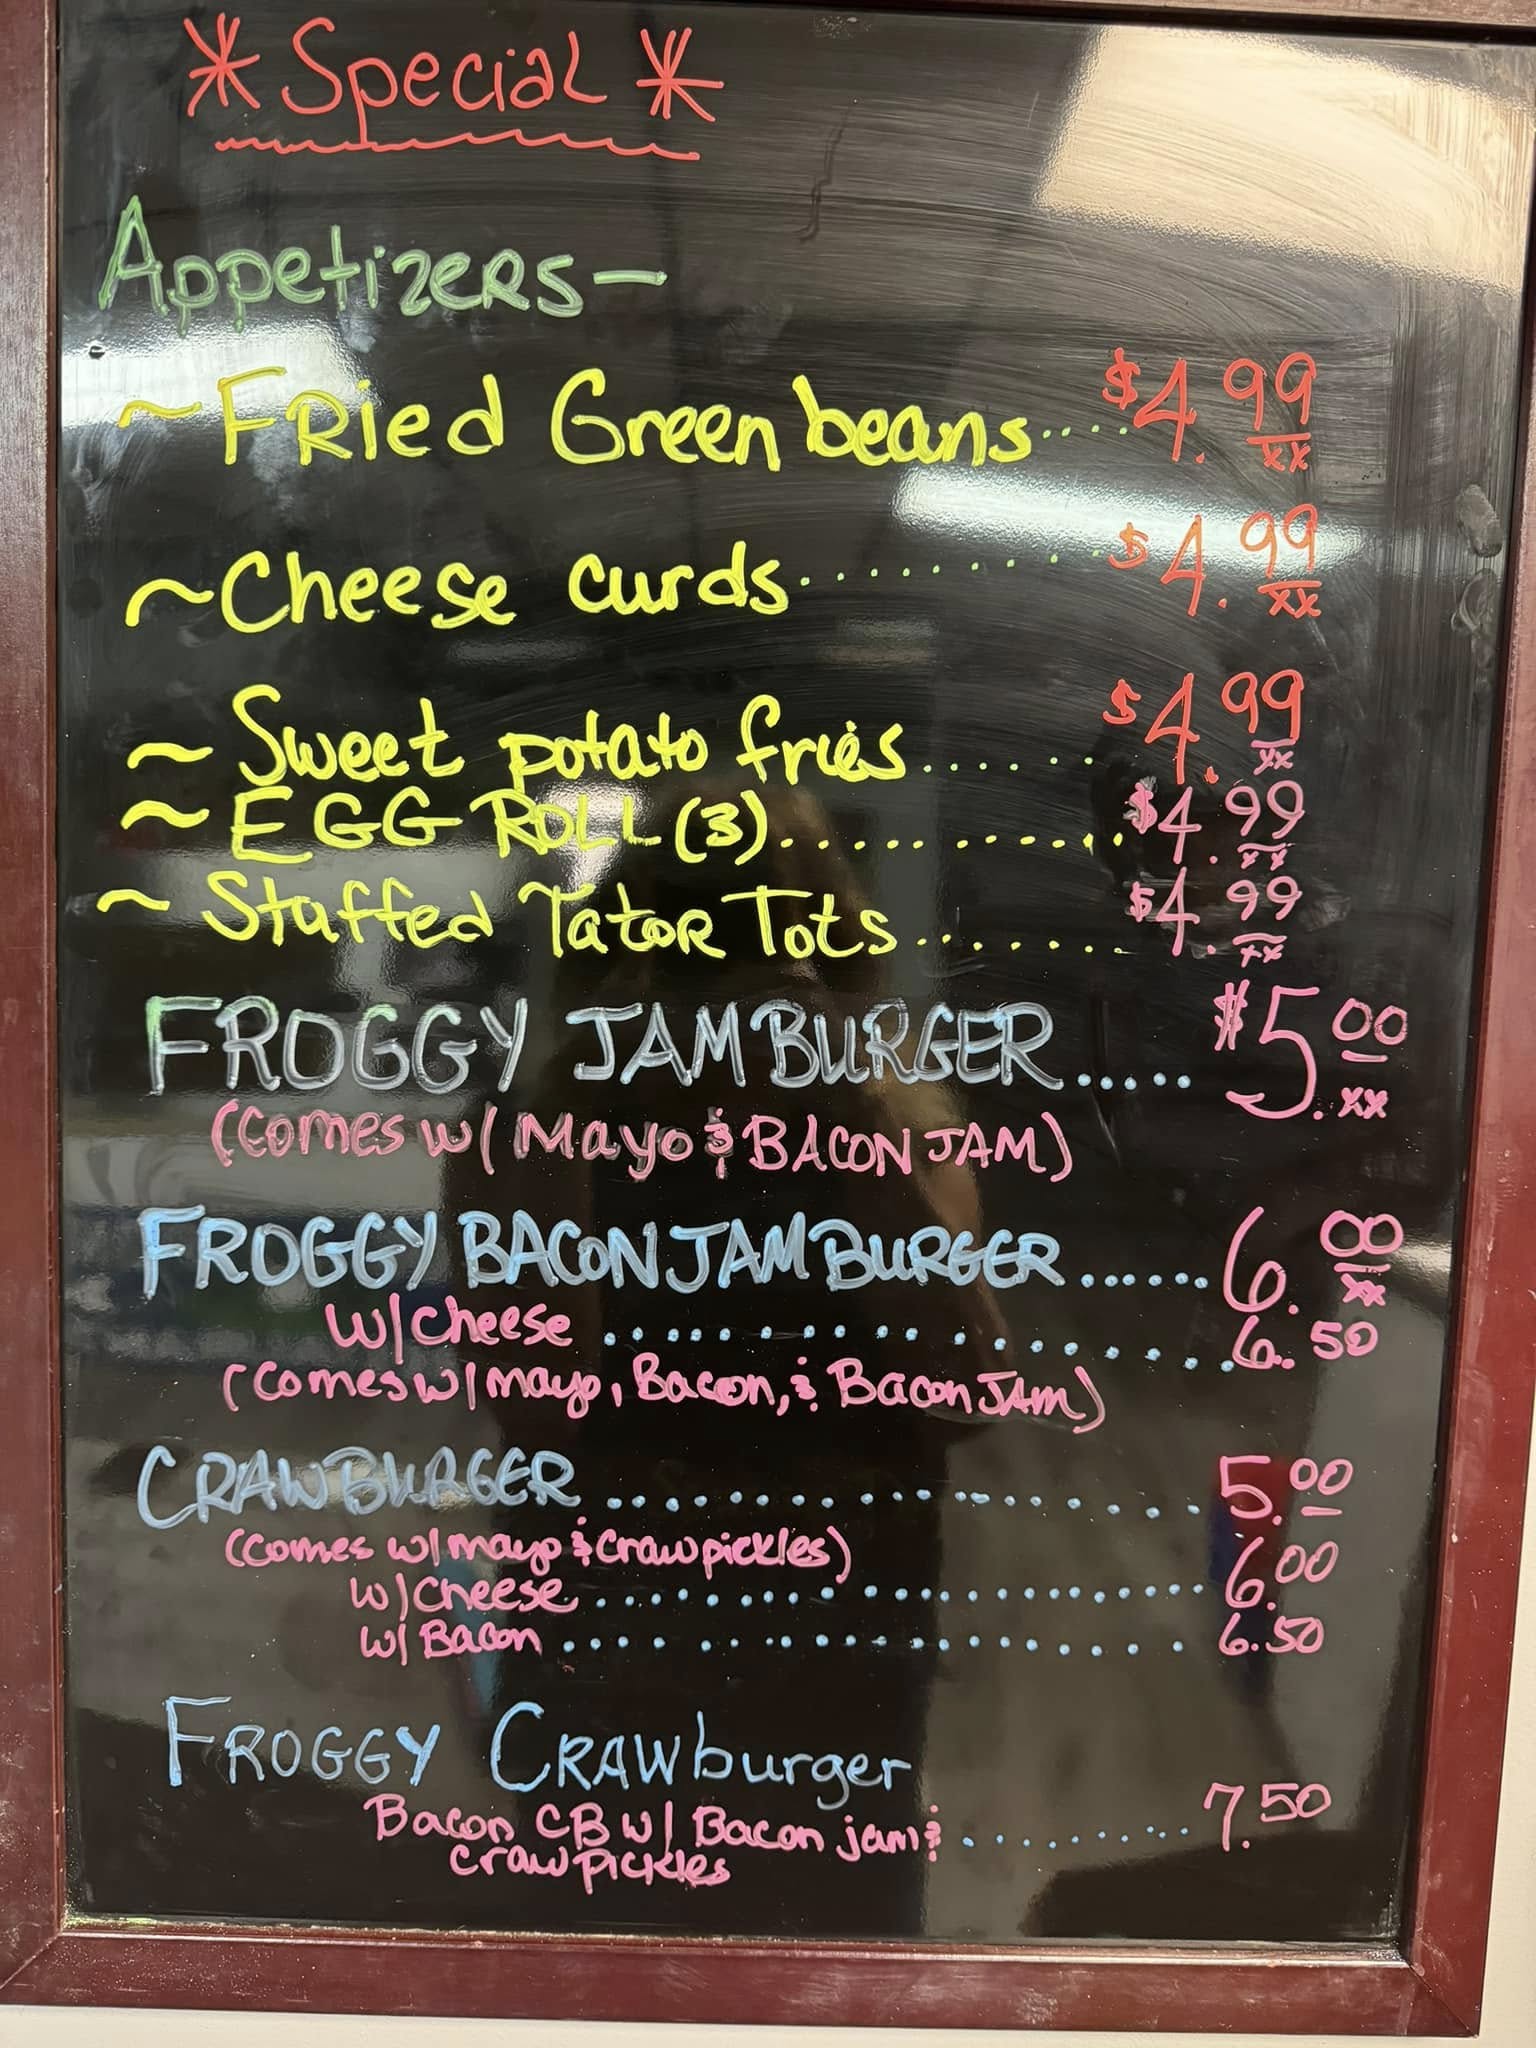 * Special *
Appetizers -
~ Fried Green beans.... $4.99 xx
~ Cheese curds....... $4.99 xx
~ Sweet potato fries...... $4.99 xx
~ EGG ROLL (3)........... $4.99 xx
~ Stuffed Tator Tots....... $4.99 xx
FROGGY JAM BURGER..... $5.00 xx
(Comes w/ Mayo & BACON JAM)
FROGGY BACON JAM BURGER...... 6.00 xx
w/ Cheese .............. 6.50
(Comes w/ mayo, Bacon, & Bacon JAM)
CRAWBURGER ................ 5.00
(Comes w/ mayo & craw pickles)
w/ Cheese ................. 6.00
w/ Bacon ................ 6.50
FROGGY CRAWburger
Bacon CB w/ Bacon jam & ........ 7.50
craw pickles